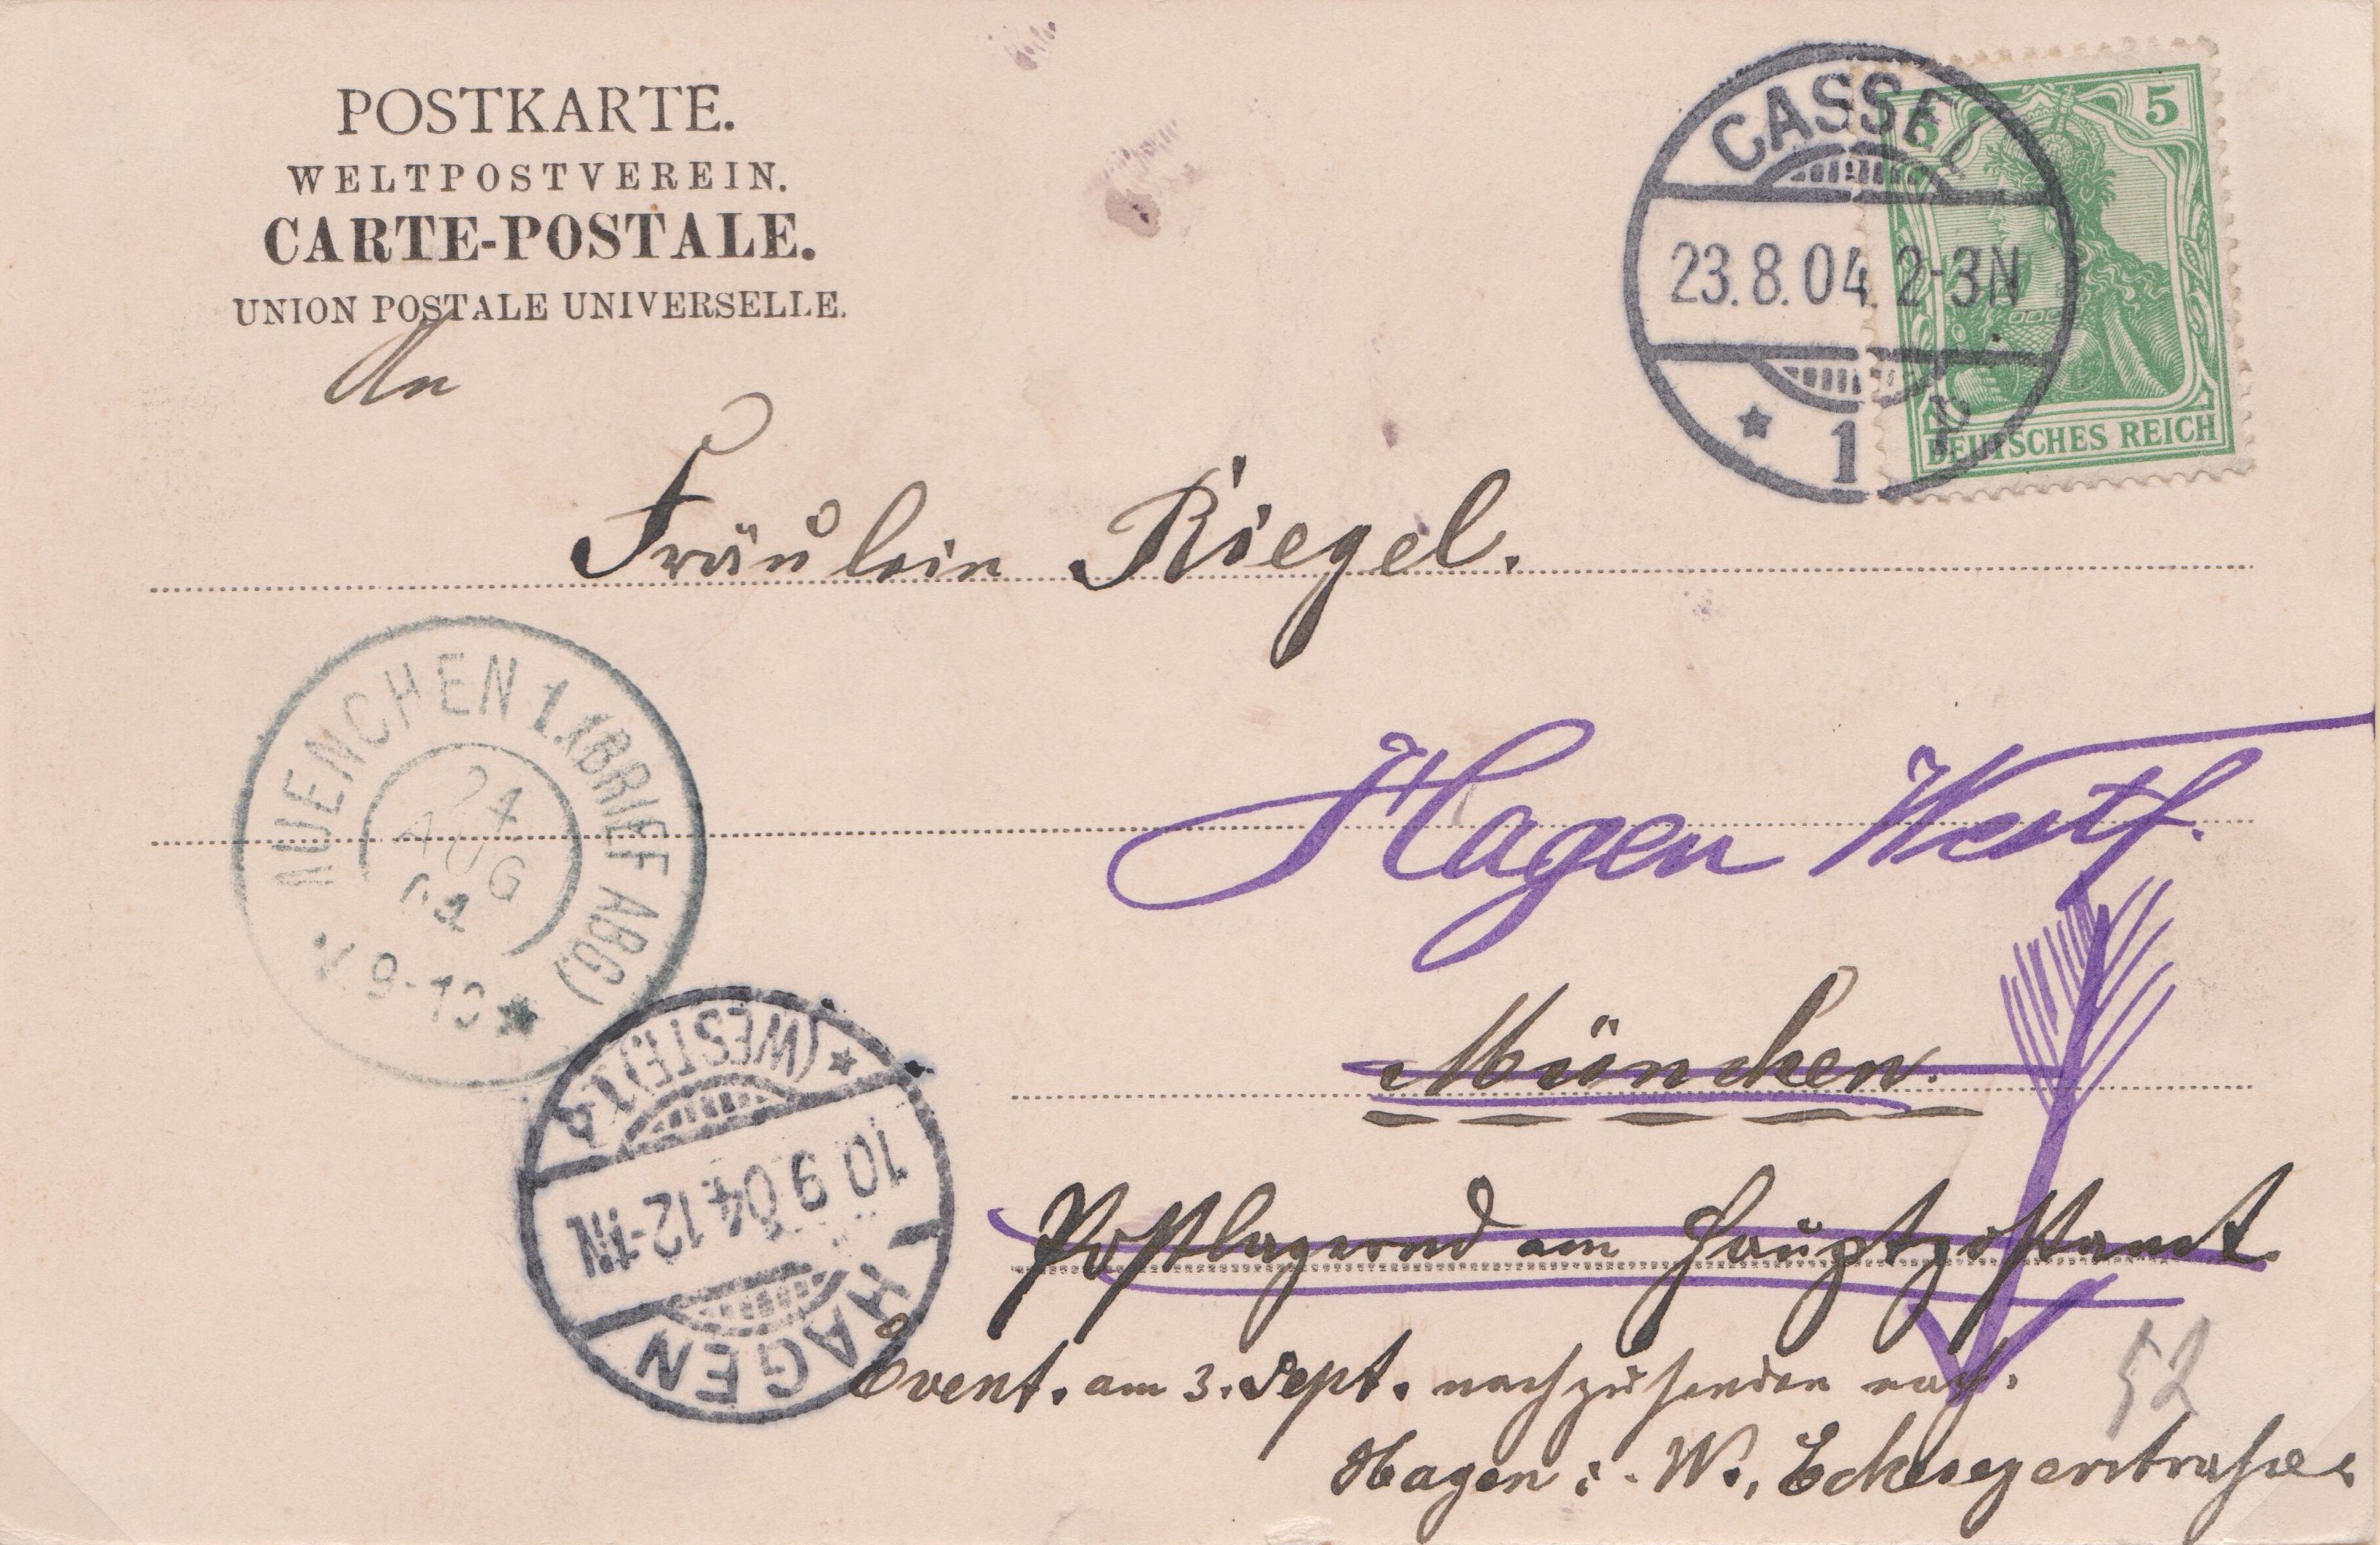 POSTKARTE.
WELTPOSTVEREIN.
CARTE-POSTALE.
UNION POSTALE UNIVERSELLE.
CASSEL
23.8.04. 2-3N
* 1
5 5
DEUTSCHES REICH
An
Fräulein Riegel.
MUENCHEN 1. (BRIEF ABG)
24
AUG
04
V. 9-10 ★
Hagen Westf.
München.
Postlagernd am Hauptpostamt
HAGEN
10.9.04.12-1N
★ (WESTF.) 1
Event. am 3. Sept. nachzusenden nach.
Hagen i. W., Eckeseyerstrasse
52